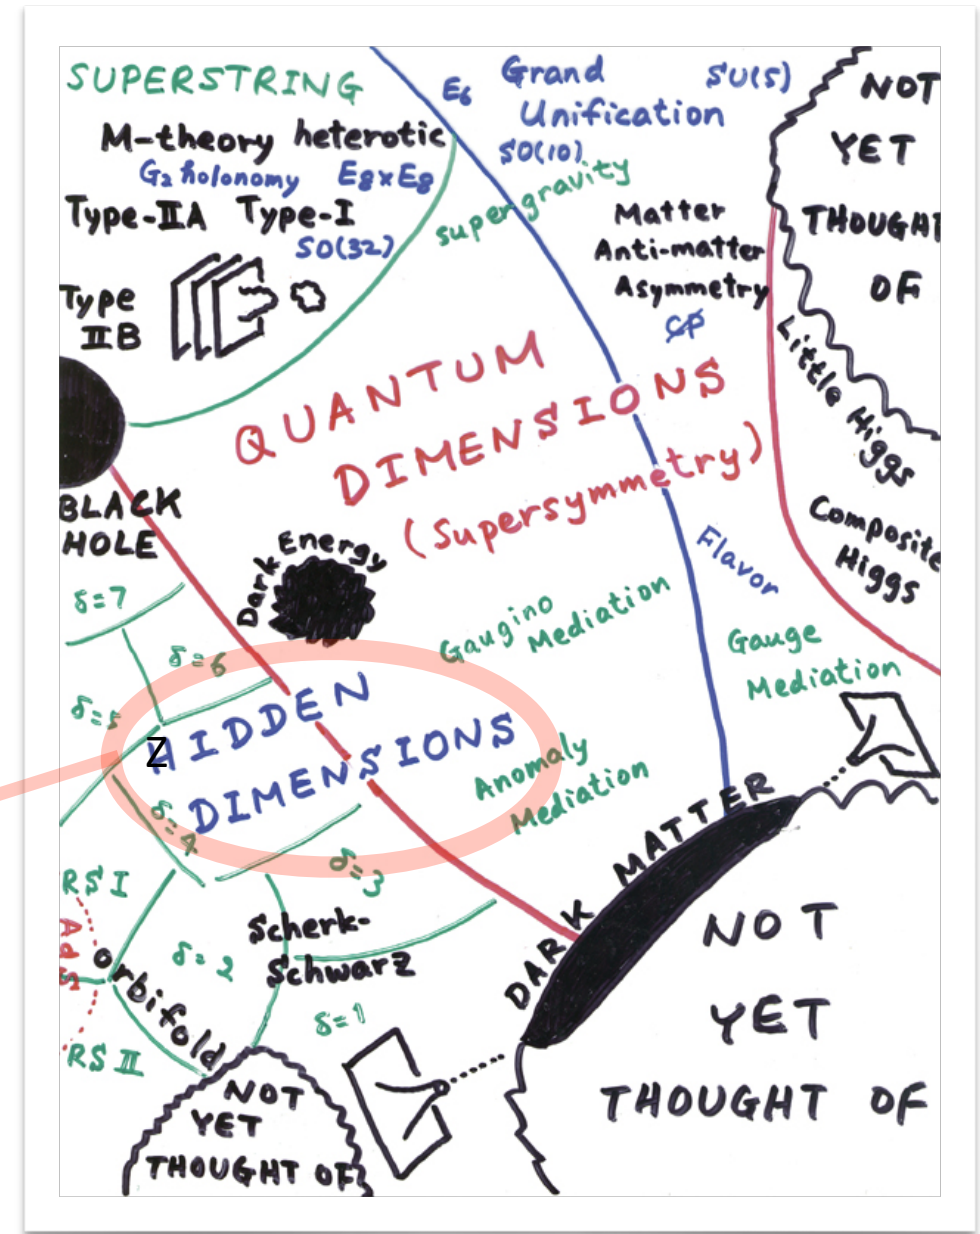 SUPERSTRING
M-theory heterotic
G2 holonomy E8xE8
Type-IIA Type-I
SO(32)
Type
IIB
E6
Grand
Unification
SU(5)
SO(10)
supergravity
Matter
Anti-matter
Asymmetry
CP
NOT
YET
THOUGHT
OF
Little Higgs
Composite
Higgs
QUANTUM
DIMENSIONS
(Supersymmetry)
BLACK
HOLE
Dark Energy
Flavor
Gaugino
Mediation
Gauge
Mediation
Anomaly
Mediation
δ=7
δ=6
δ=5
HIDDEN
DIMENSIONS
Z
δ=4
δ=3
RS I
AdS
orbifold
δ=2
Scherk-
Schwarz
δ=1
RS II
DARK MATTER
NOT
YET
THOUGHT OF
NOT
YET
THOUGHT OF